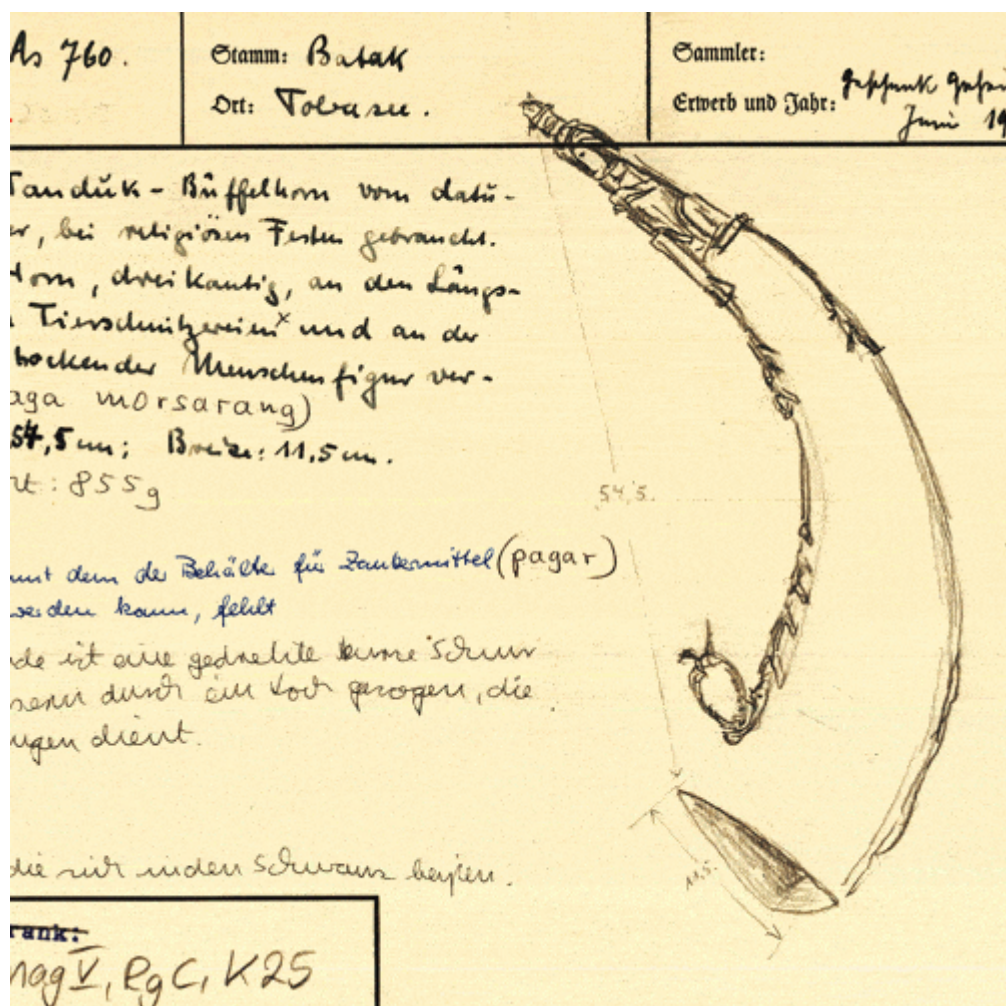 As 760.
Stamm: Batak
Ort: Tobasee.
Sammler:
Erwerb und Jahr: Geschenk
Juni 19
Tanduk - Büffelhorn vom datu-
er, bei religiösen Festen gebraucht.
Horn, dreikantig, an den Längs-
Tierschnitzereien x und an der
hockender Menschenfigur ver-
aga morsarang)
54,5 cm; Breite: 11,5 cm.
ht: 855g
54,5.
mit dem der Behälter für Zaubermittel (pagar)
werden kann, fehlt
de ist eine gedrehte kurze Schnur
durch ein Loch gezogen, die
ngen dient.
11,5.
die sich in den Schwanz beißen.
rank:
mag V, Rg C, K25